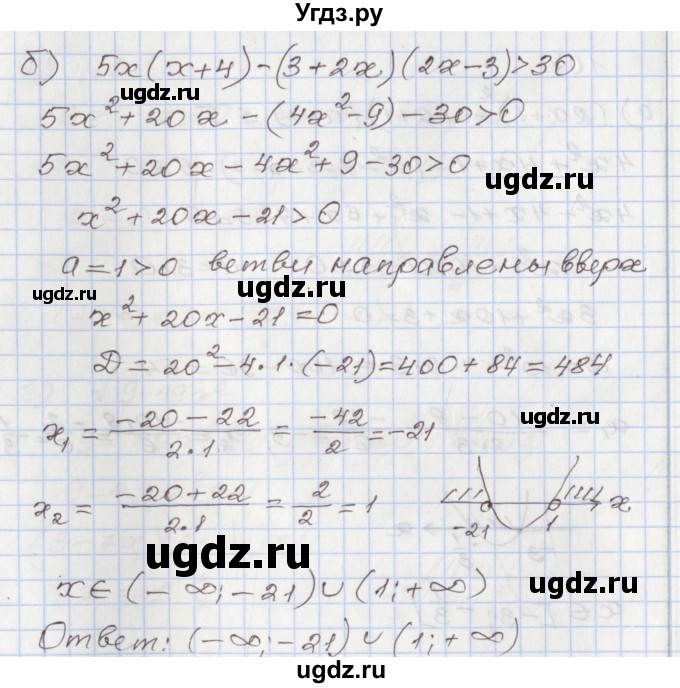 Угдз.ру
б) 5x(x+4)-(3+2x)(2x-3)>30
5x²+20x-(4x²-9)-30>0
ugdz.ru
ugdz.ru
5x²+20x-4x²+9-30>0
ugdz.ru
x²+20x-21>0
a=1>0 ветви направлены вверх
ugdz.ru
ugdz.ru
ugdz.ru
x²+20x-21=0
D=20²-4·1·(-21)=400+84=484
x₁=(-20-22)/(2·1)=(-42)/2=-21
x₂=(-20+22)/(2·1)=2/2=1
-21 1 x
ugdz.ru
x∈(-∞;-21)∪(1;+∞)
ugdz.ru
ugdz.ru
Ответ: (-∞;-21)∪(1;+∞)
ugdz.ru